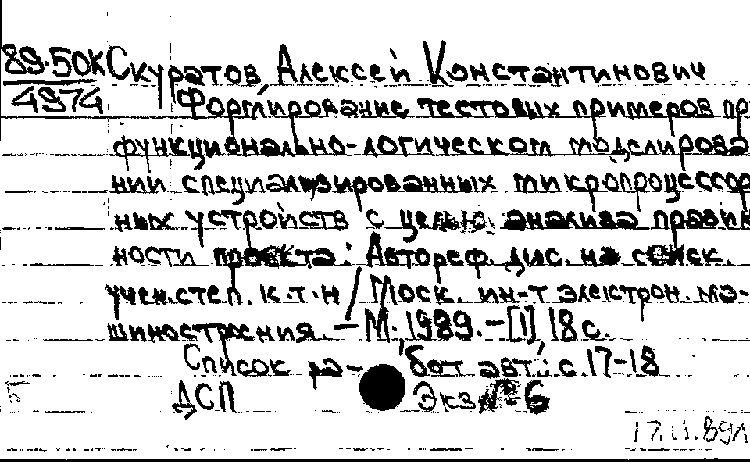 89-50К Скуратов Алексей Константинович
4974 Формирование тестовых примеров пр
функционально-логическом моделирова
нии специализированных микропроцессор
ных устройств с целью анализа правил
ности проекта: Автореф. дис. на соиск.
учен. степ. к.т.н / Моск. ин-т электрон. ма-
шиностроения. — М. 1989. — [1], 18 с.
Список ра- бот авт.: с. 17-18
ДСП Экз № 6
Б
17.11.89л